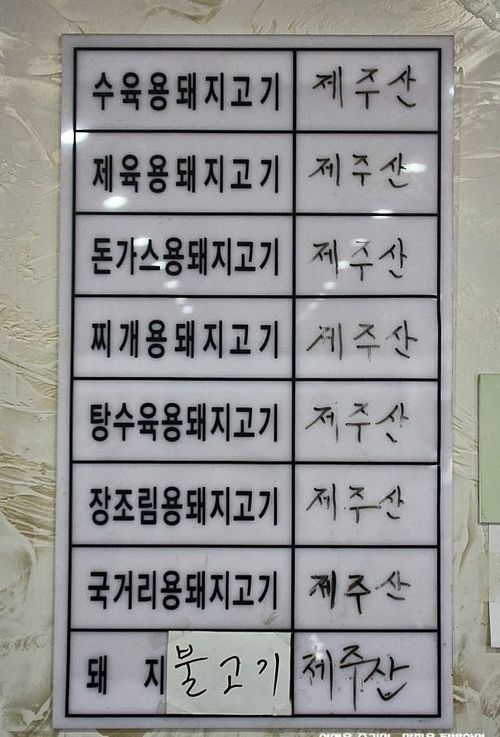 수육용돼지고기 제주산
제육용돼지고기 제주산
돈가스용돼지고기 제주산
찌개용돼지고기 제주산
탕수육용돼지고기 제주산
장조림용돼지고기 제주산
국거리용돼지고기 제주산
돼지불고기 제주산